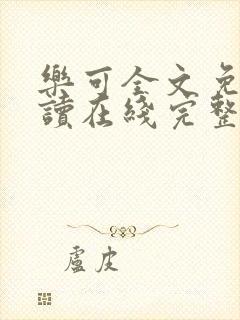 樂可全文免
讀在綫完整
盧皮